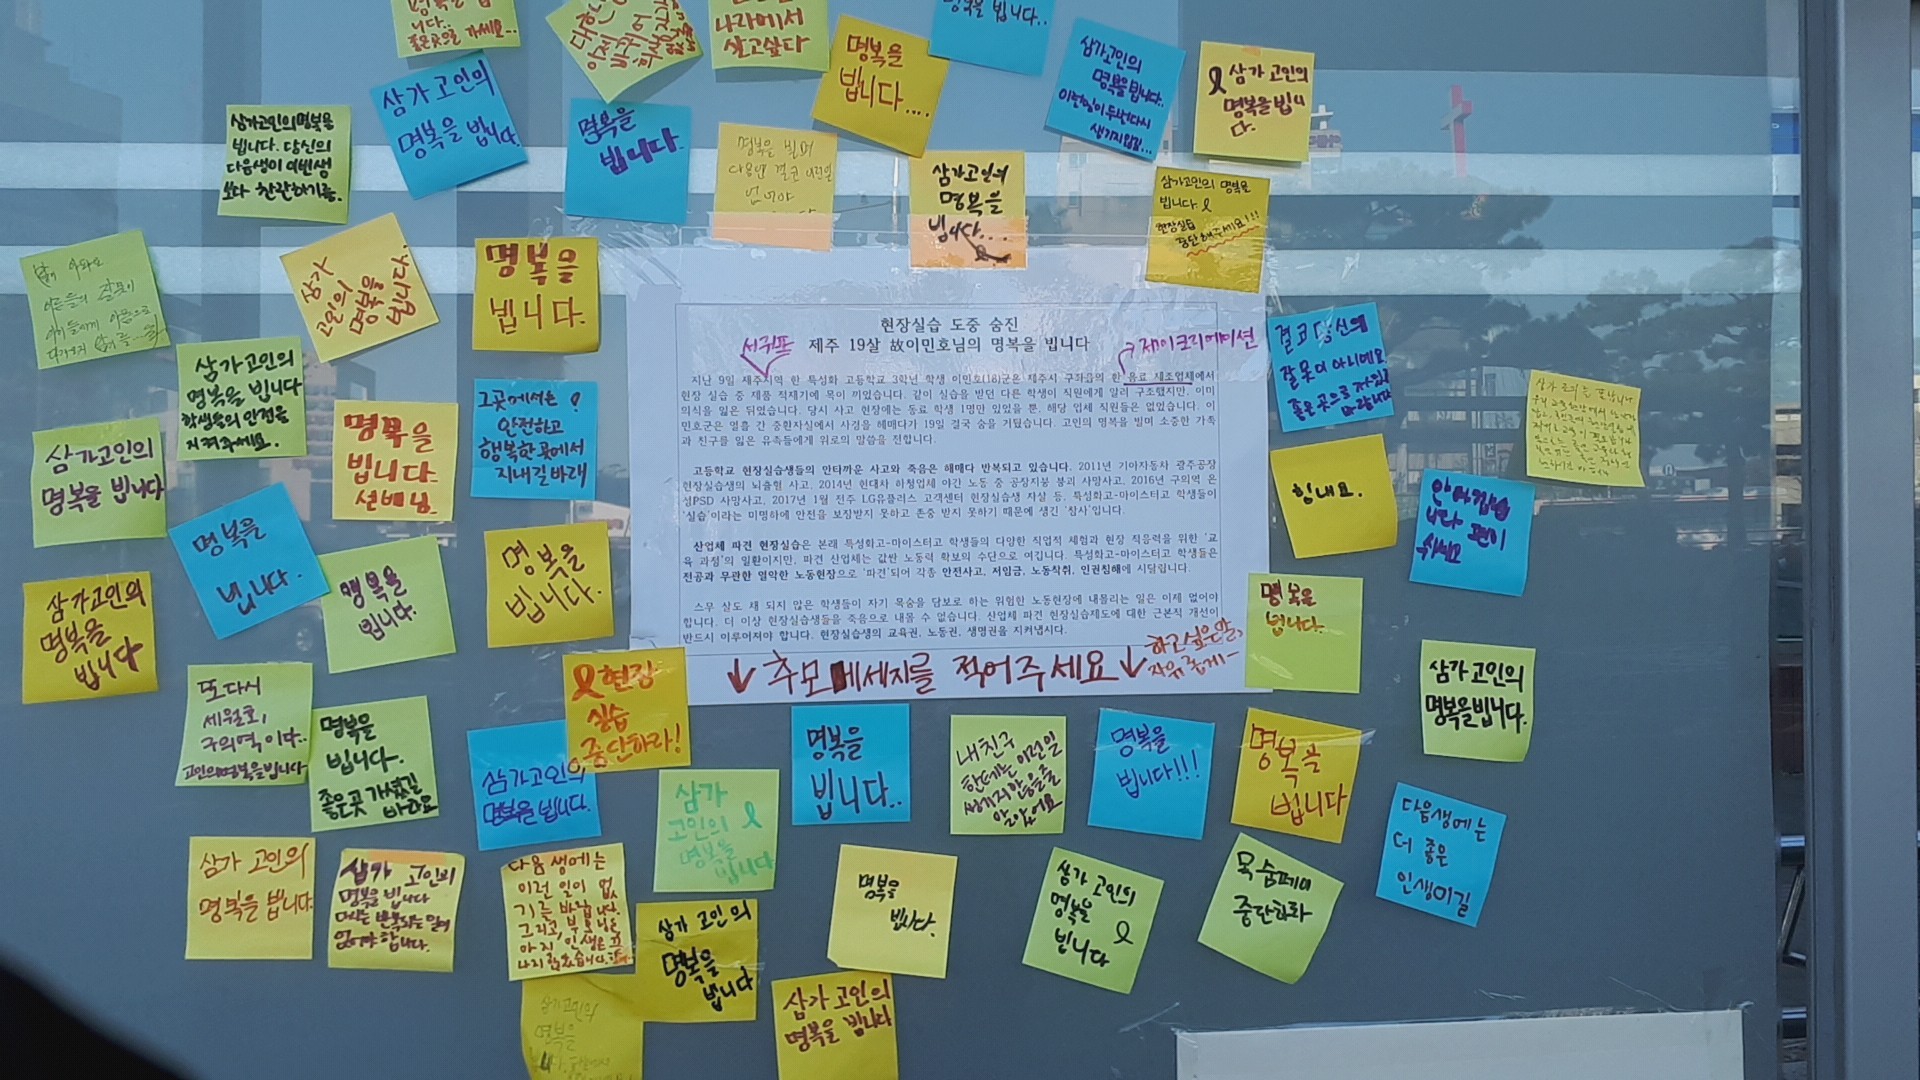 명복을 빕
니다..
좋은곳으로 가세요...
나라에서
살고싶다
명복을
빕니다...
명복을 빕니다..
삼가고인의
명복을빕니다..
이런일이 두번다시
생기지않길...
삼가 고인의
명복을 빕니
다.
삼가고인의명복을
빕니다. 당신의
다음생이 이번생
보다 찬란하기를.
삼가고인의
명복을 빕니다.
명복을
빕니다.
명복을 빌며
다음엔 결코 이런일
없어야
삼가고인의
명복을
빕니다...
삼가고인의 명복을
빕니다.
현장실습
중단해주세요!!!
어른들의 잘못이
아이들에게 아픔으로
삼가
고인의
명복을
빕니다.
명복을
빕니다.
삼가고인의
명복을 빕니다
학생들의 안전을
지켜주세요.
명복을
빕니다.
선배님
그곳에서는
안전하고
행복한 곳에서
지내길바래
삼가고인의
명복을 빕니다
명복을
빕니다.
명복을
빕니다.
명복을
빕니다.
삼가고인의
명복을
빕니다
현장실습 도중 숨진
서귀포
제주 19살 故이민호님의 명복을 빕니다
제이크리에이션
지난 9일 제주지역 한 특성화 고등학교 3학년 학생 이민호(18)군은 제주시 구좌읍의 한 음료 제조업체에서
현장 실습 중 제품 적재기에 목이 끼었습니다. 같이 실습을 받던 다른 학생이 직원에게 알려 구조했지만, 이미
의식을 잃은 뒤였습니다. 당시 사고 현장에는 동료 학생 1명만 있었을 뿐, 해당 업체 직원들은 없었습니다. 이
민호군은 열흘 간 중환자실에서 사경을 헤매다가 19일 결국 숨을 거뒀습니다. 고인의 명복을 빌며 소중한 가족
과 친구를 잃은 유족들에게 위로의 말씀을 전합니다.
고등학교 현장실습생들의 안타까운 사고와 죽음은 해매다 반복되고 있습니다. 2011년 기아자동차 광주공장
현장실습생의 뇌출혈 사고, 2014년 현대차 하청업체 야간 노동 중 공장지붕 붕괴 사망사고, 2016년 구의역 은
성PSD 사망사고, 2017년 1월 전주 LG유플러스 고객센터 현장실습생 자살 등, 특성화고-마이스터고 학생들이
'실습'이라는 미명하에 안전을 보장받지 못하고 존중 받지 못하기 때문에 생긴 '참사'입니다.
산업체 파견 현장실습은 본래 특성화고-마이스터고 학생들의 다양한 직업적 체험과 현장 적응력을 위한 '교
육 과정'의 일환이지만, 파견 산업체는 값싼 노동력 확보의 수단으로 여깁니다. 특성화고-마이스터고 학생들은
전공과 무관한 열악한 노동현장으로 '파견'되어 각종 안전사고, 저임금, 노동착취, 인권침해에 시달립니다.
스무 살도 채 되지 않은 학생들이 자기 목숨을 담보로 하는 위험한 노동현장에 내몰리는 일은 이제 없어야
합니다. 더 이상 현장실습생들을 죽음으로 내몰 수 없습니다. 산업체 파견 현장실습제도에 대한 근본적 개선이
반드시 이루어져야 합니다. 현장실습생의 교육권, 노동권, 생명권을 지켜냅시다.
↓ 추모 메세지를 적어주세요 ↓
하고싶은말,
자유롭게~
결코 당신의
잘못이 아니에요
좋은곳으로 가시길
바랍니다
힘내요.
안타깝습
니다 고인이
명복을
빕니다.
삼가고인의
명복을빕니다.
또다시
세월호,
구의역이다.
고인의명복을빕니다
명복을
빕니다.
좋은곳 가셨길
바라요
현장
실습
중단하라!
삼가고인의
명복을 빕니다.
삼가
고인의
명복을
빕니다
명복을
빕니다..
내친구
한테는 이런일
생기지않을줄
알았어요
명복을
빕니다!!!
명복을
빕니다
다음생에는
더 좋은
인생이길
삼가 고인의
명복을 빕니다.
삼가 고인의
명복을 빕니다
다시는 반복되는 일이
없어야 합니다.
다음 생에는
이런 일이 없
기를 바랍니다.
삼가 고인의
명복을
빕니다
명복을
빕니다.
삼가 고인의
명복을
빕니다
목숨페이
중단하라
삼가고인의
명복을
삼가 고인의
명복을 빕니다